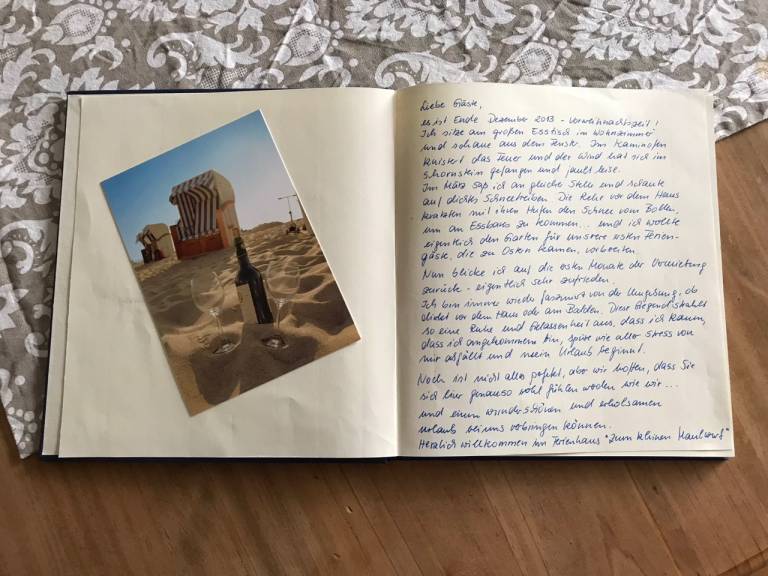 Liebe Gäste,
es ist Ende Dezember 2013 - Vorweihnachtszeit!
Ich sitze am großen Esstisch im Wohnzimmer
und schaue aus dem Fenster. Im Kaminofen
knistert das Feuer und der Wind hat sich im
Schornstein gefangen und jault leise.
Im März saß ich an gleicher Stelle und schaute
auf dichtes Schneetreiben. Die Rehe vor dem Haus
kratzten mit ihren Hufen den Schnee vom Boden,
um an Essbares zu kommen... und ich wollte
eigentlich den Garten für unsere ersten Ferien-
gäste, die zu Ostern kamen, vorbereiten.
Nun blicke ich auf die ersten Monate der Vermietung
zurück - eigentlich sehr zufrieden.
Ich bin immer wieder fasziniert von der Umgebung, ob
direkt vor dem Haus oder am Bodden. Diese Gegend strahlt
so eine Ruhe und Gelassenheit aus, dass ich kaum,
dass ich angekommen bin, spüre wie aller Stress von
mir abfällt und mein Urlaub beginnt.
Noch ist nicht alles perfekt, aber wir hoffen, dass Sie
sich hier genauso wohl fühlen werden wie wir...
und einen wunderschönen und erholsamen
Urlaub bei uns verbringen können.
Herzlich willkommen im Ferienhaus "Zum kleinen Maulwurf"